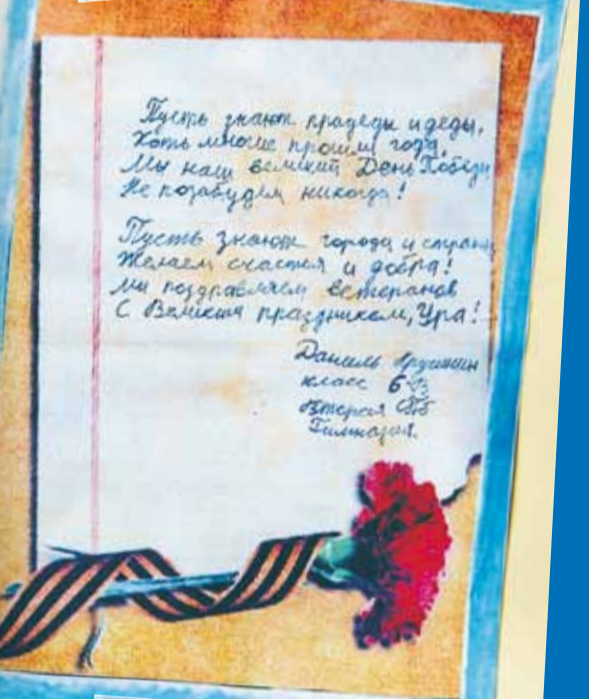 Пусть знают прадеды и деды,
Хоть многие прошли года,
Мы наш великий День Победы
Не позабудем никогда!
Пусть знают города и страны
Желаем счастья и добра!
Мы поздравляем ветеранов
С Великим праздником, Ура!
Даниль
класс 6
Вторая СПб
Гимназия.